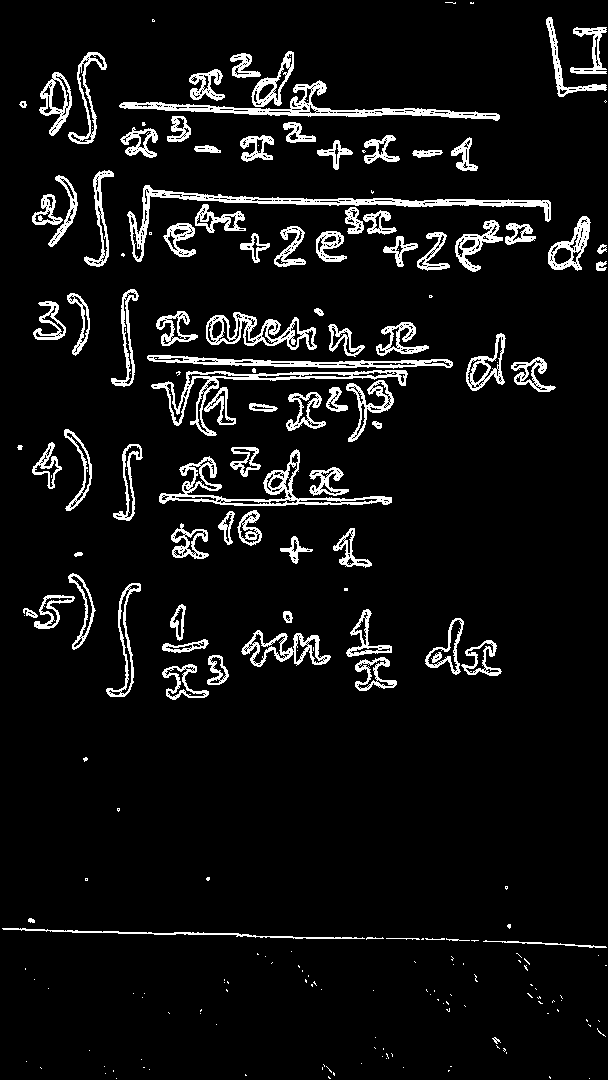 I
1) ∫ x² dx / (x³ - x² + x - 1)
2) ∫ √(e^(4x) + 2e^(3x) + 2e^(2x)) dx
3) ∫ x arcsin x / √((1 - x²)³) dx
4) ∫ x⁷ dx / (x¹⁶ + 1)
5) ∫ 1/x³ sin 1/x dx